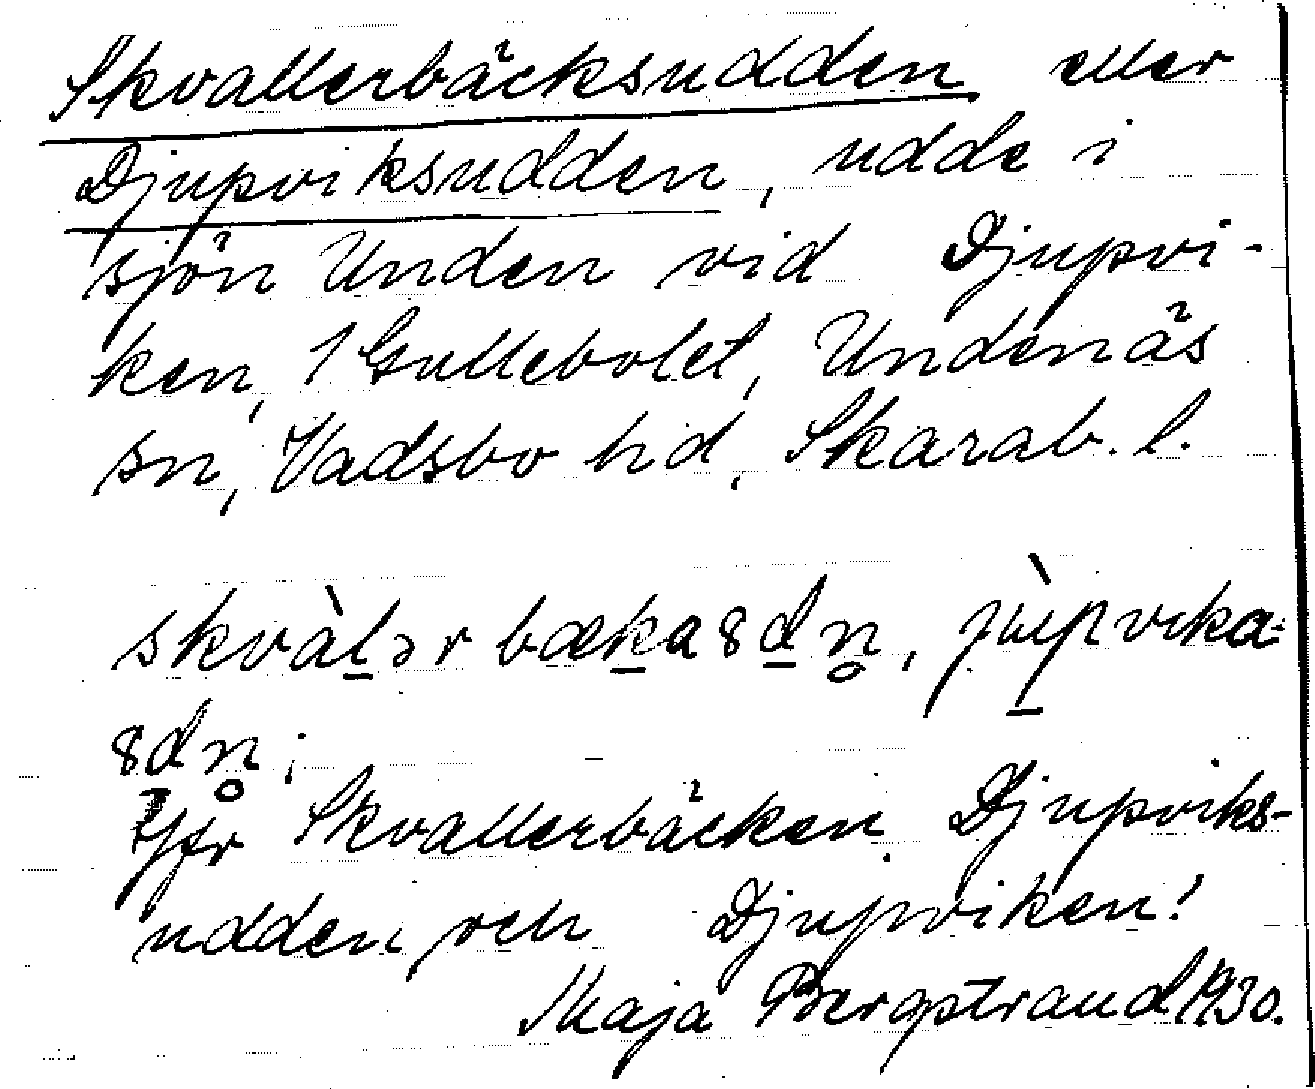 Skvallerbäcksudden eller
Djupviksudden, udde i
sjön Unden vid Djupvi-
ken, 1 Gullebolet, Undenäs
sn, Vadsbo hd, Skarab. l.
skvàl̠ər bæk̠a8d̠n̥, jùp̠vika=
8dn̥;
Jfr Skvallerbäcken, Djupviks-
udden och Djupviken!
Maja Bergstrand 1930.